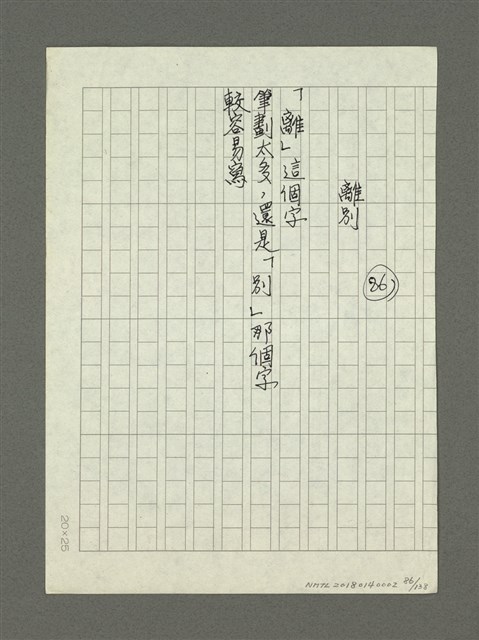 86
離別
「離」這個字
筆劃太多，還是「別」那個字
較容易寫
20×25
NMTL20180140002 86/138